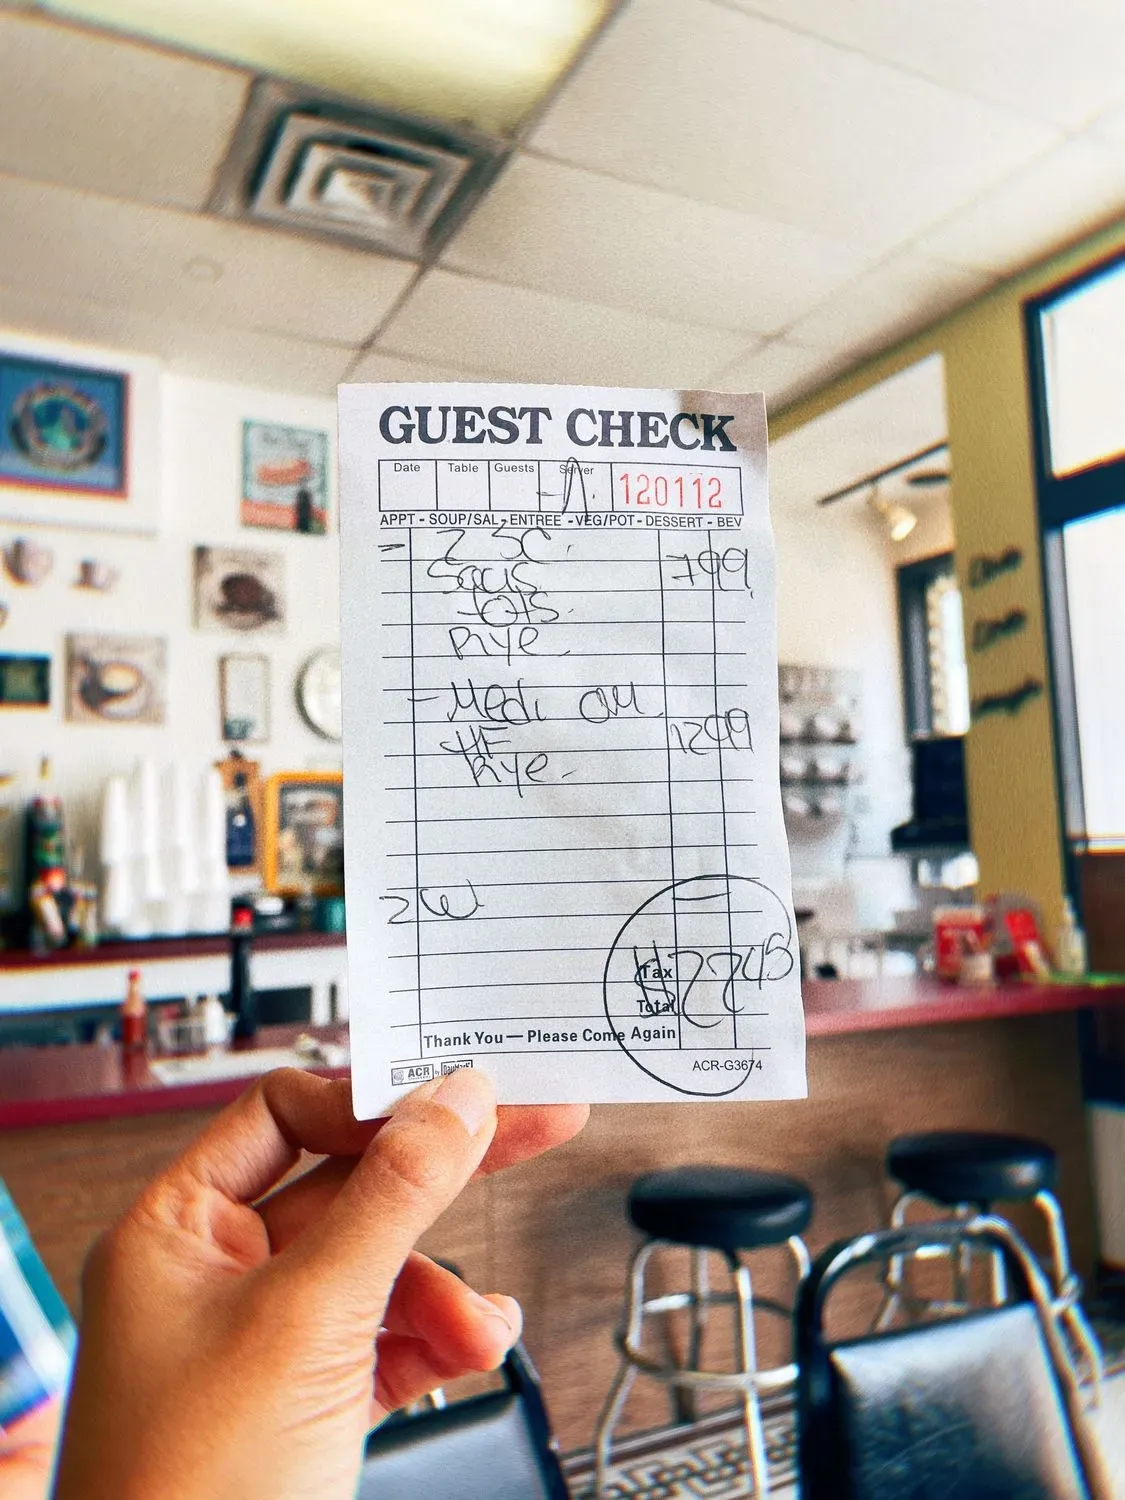 GUEST CHECK
Date Table Guests Server
120112
APPT - SOUP/SAL - ENTREE - VEG/POT - DESSERT - BEV
- 2 SC.
Saus 799
tots.
Rye
- Medi OM
HF 1299
Rye
2 W
Tax $22.45
Total
Thank You — Please Come Again
ACR by DayMark ACR-G3674